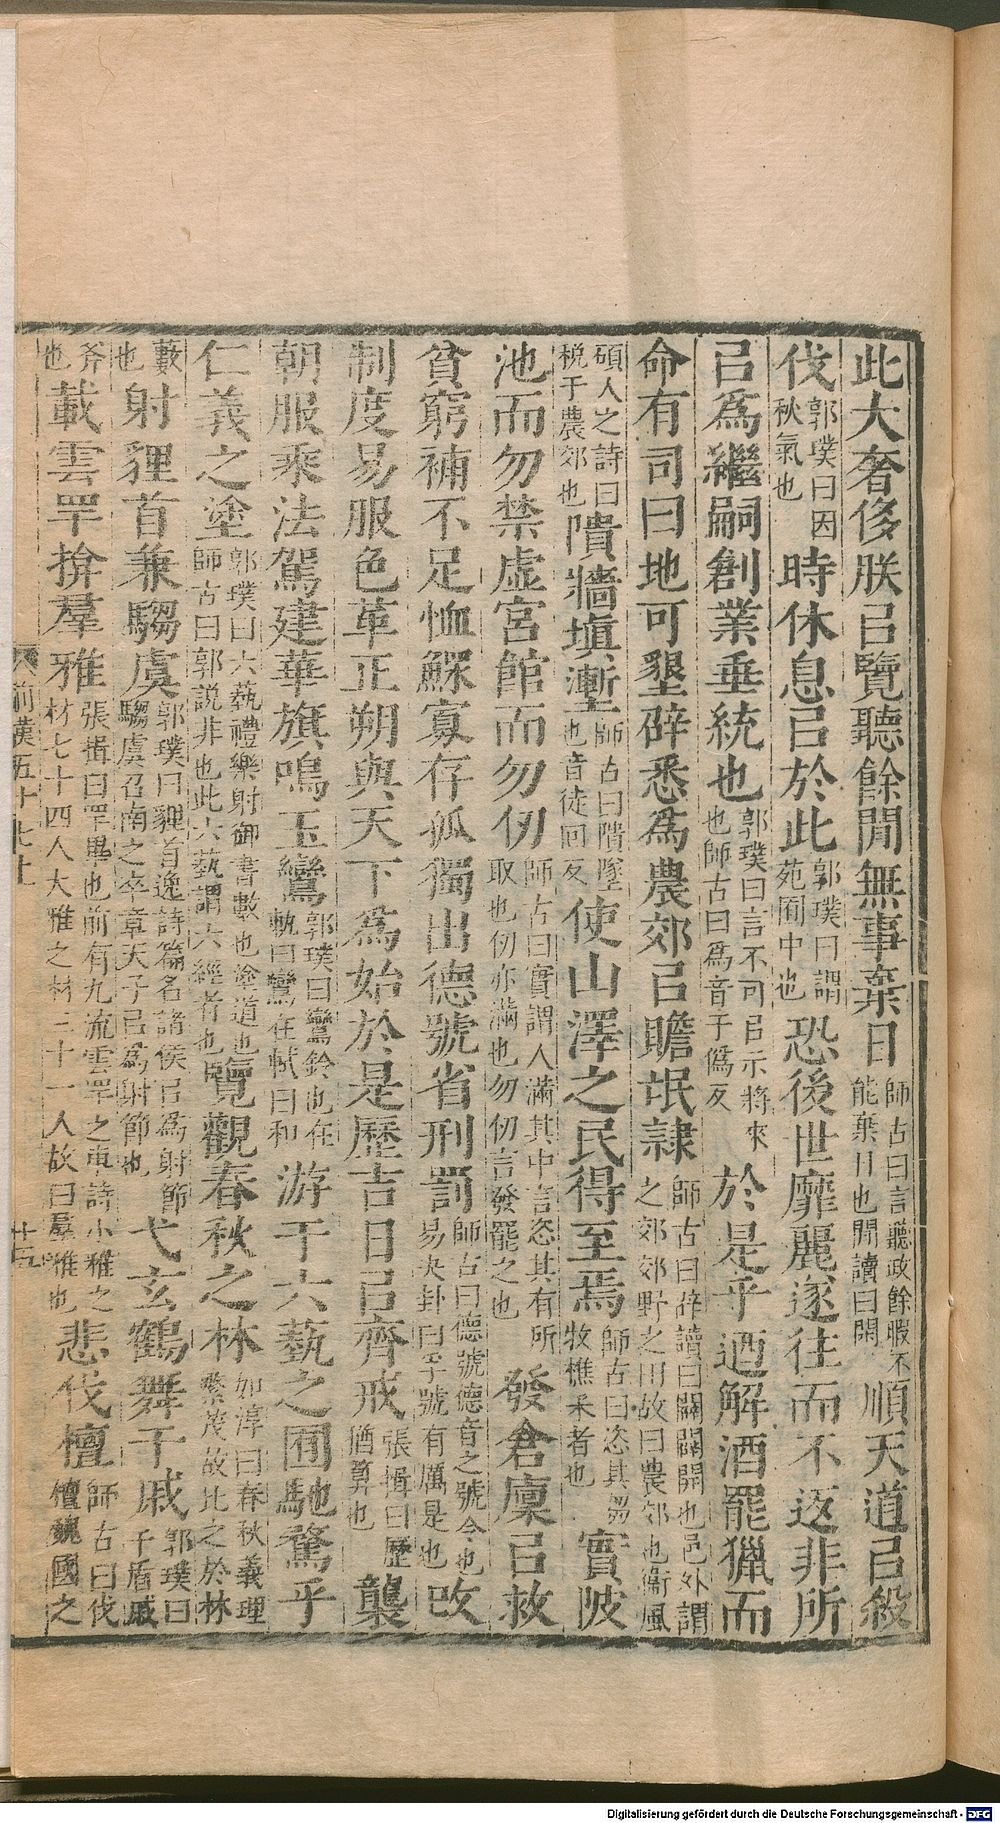 此大奢侈朕㠯覽聽餘閒無事棄日師古曰言聽政餘暇不能棄日也閒讀曰閑順天道㠯殺
伐郭璞曰因秋氣也時休息㠯於此郭璞曰謂苑囿中也恐後世靡麗遂往而不返非所
㠯為繼嗣創業垂統也郭璞曰言不可㠯示將來也師古曰為音于偽反於是乎迺解酒罷獵而
命有司曰地可墾辟悉為農郊㠯贍氓隸師古曰辟讀曰闢闢開也邑外謂之郊郊野之田故曰農郊也衞風
碩人之詩曰稅于農郊也隤牆塡塹師古曰隤墜也音徒回反使山澤之民得至焉師古曰恣其芻牧樵采者也實陂
池而勿禁虛宮館而勿仞師古曰實謂人滿其中言恣其有所取也仞亦滿也勿仞言發罷之也發倉廩㠯救
貧窮補不足恤鰥寡存孤獨出德號省刑罰師古曰德號德音之號令也易夬卦曰孚號有厲是也改
制度易服色革正朔與天下為始於是歷吉日㠯齊戒張揖曰歷猶算也襲
朝服乘法駕建華旗鳴玉鸞郭璞曰鸞鈴也在軾曰鸞在軾曰和游于六藝之囿馳騖乎
仁義之塗郭璞曰六藝禮樂射御書數也塗道也師古曰郭説非也此六藝謂六經者也覽觀春秋之林如淳曰春秋義理繁茂故比之於林
藪也射貍首兼騶虞郭璞曰貍首逸詩篇名諸侯㠯為射節騶虞召南之卒章天子㠯為射節也弋玄鶴舞干戚郭璞曰干盾戚
斧也載雲䍐揜羣雅張揖曰䍐畢也前有九流雲䍐之車詩小雅之材七十四人大雅之材三十一人故曰羣雅也悲伐檀師古曰伐檀魏國之
前漢五十七上
廿五
Digitalisierung gefördert durch die Deutsche Forschungsgemeinschaft - DFG